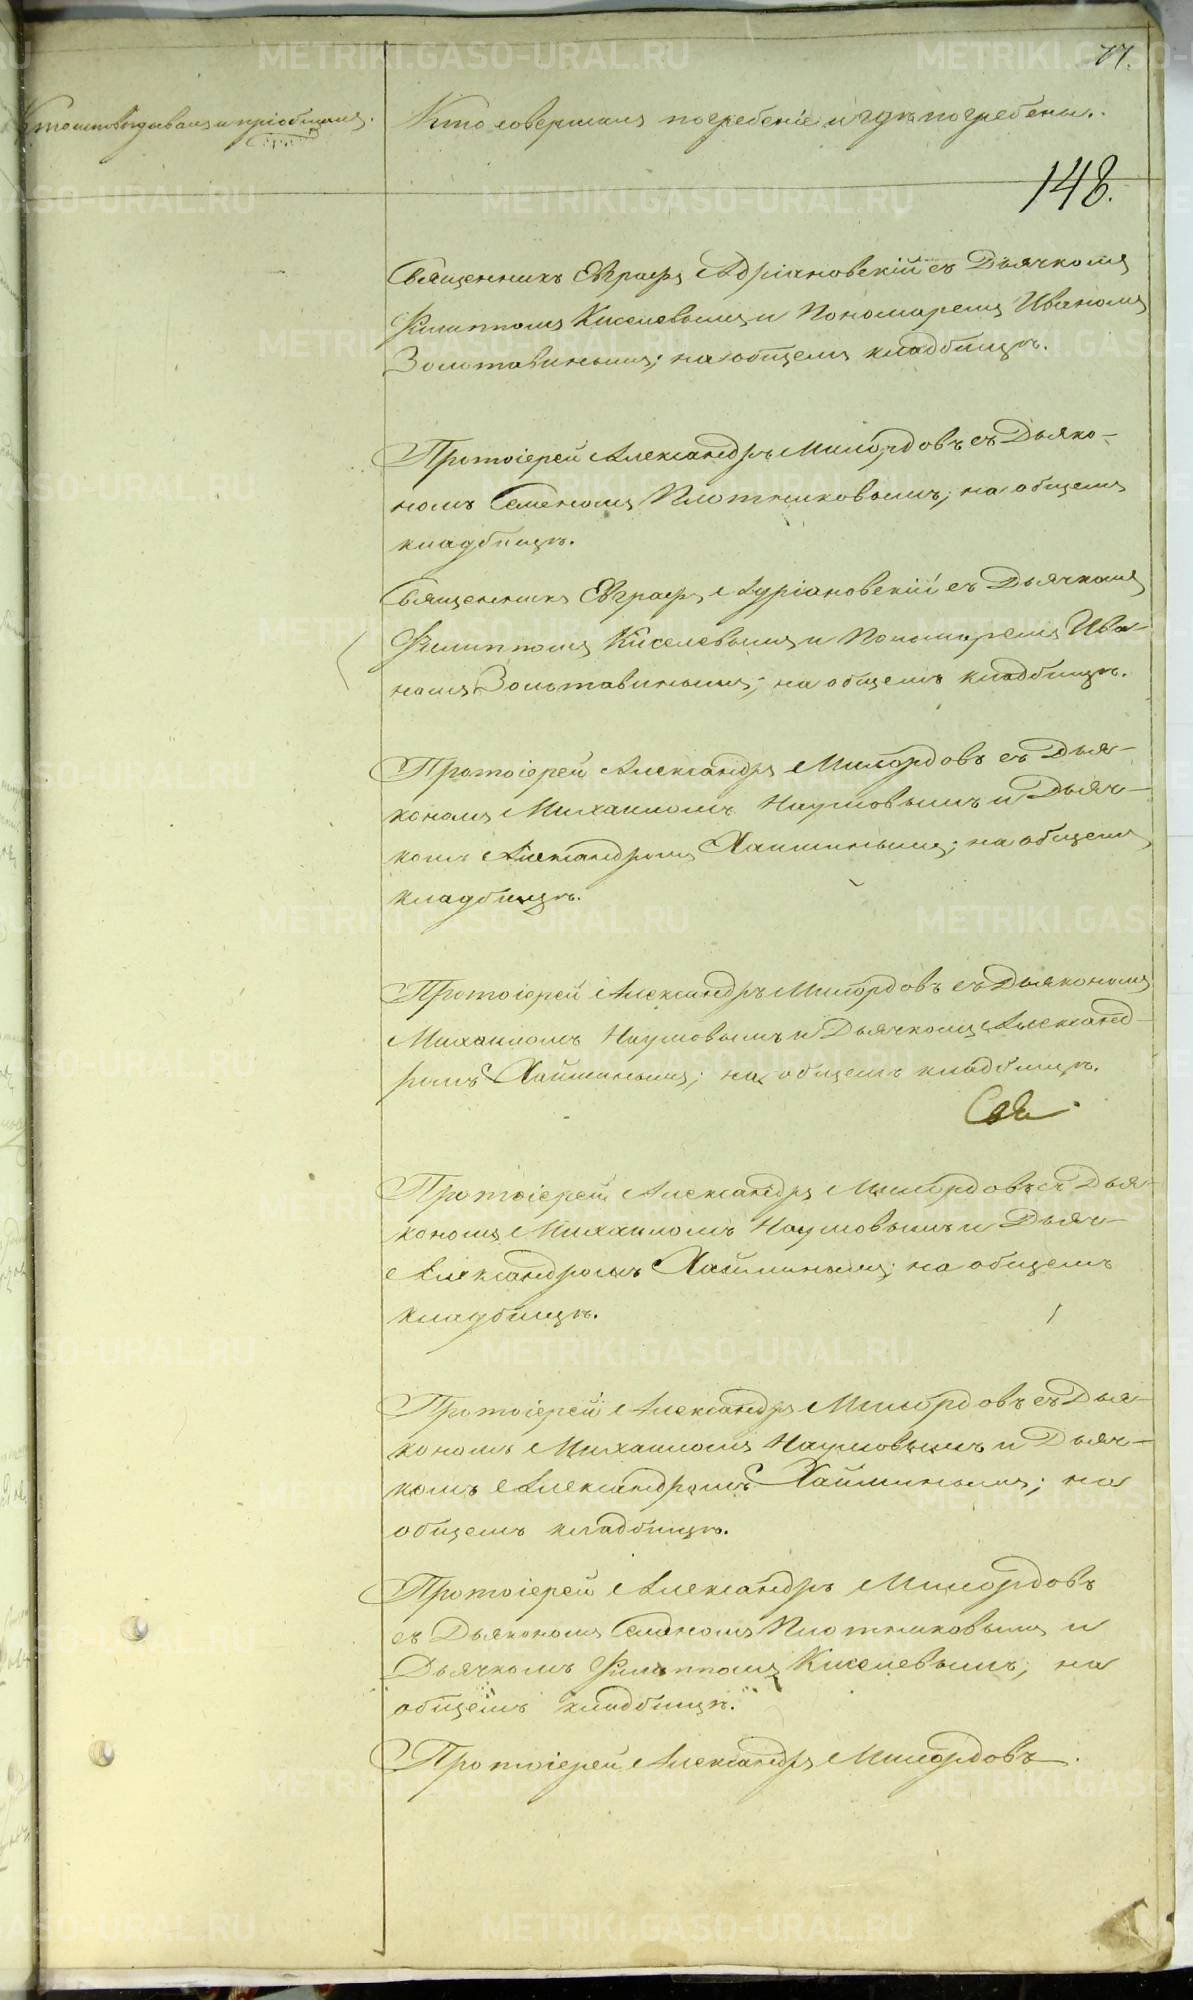 77.
Кто исповѣдывалъ и пріобщалъ.
Кто совершалъ погребеніе и гдѣ погребены.
148.
Священникъ Евграфъ Адріановскій съ Дьячкомъ
Филиппомъ Киселевымъ и Пономаремъ Иваномъ
Золотавинымъ; на общемъ кладбищѣ.
Протоіерей Александръ Милордовъ съ Дьяко-
номъ Семеномъ Плотниковымъ; на общемъ
кладбищѣ.
Священникъ Евграфъ Адріановскій съ Дьячкомъ
Филиппомъ Киселевымъ и Пономаремъ Ива-
номъ Золотавинымъ; на общемъ кладбищѣ.
Протоіерей Александръ Милордовъ съ Дья-
кономъ Михаиломъ Наумовымъ и Дьяч-
комъ Александромъ Хайминымъ; на общемъ
кладбищѣ.
Протоіерей Александръ Милордовъ съ Дьякономъ
Михаиломъ Наумовымъ и Дьячкомъ Александ-
ромъ Хайминымъ; на общемъ кладбищѣ.
Протоіерей Александръ Милордовъ съ Дья-
кономъ Михаиломъ Наумовымъ и Дьяч-
Александромъ Хайминымъ; на общемъ
кладбищѣ.
Протоіерей Александръ Милордовъ съ Дья-
кономъ Михаиломъ Наумовымъ и Дьяч-
комъ Александромъ Хайминымъ; на
общемъ кладбищѣ.
Протоіерей Александръ Милордовъ
съ Дьякономъ Семеномъ Плотниковымъ и
Дьячкомъ Филиппомъ Киселевымъ; на
общемъ кладбищѣ.
Протоіерей Александръ Милордовъ.
METRIKI.GASO-URAL.RU